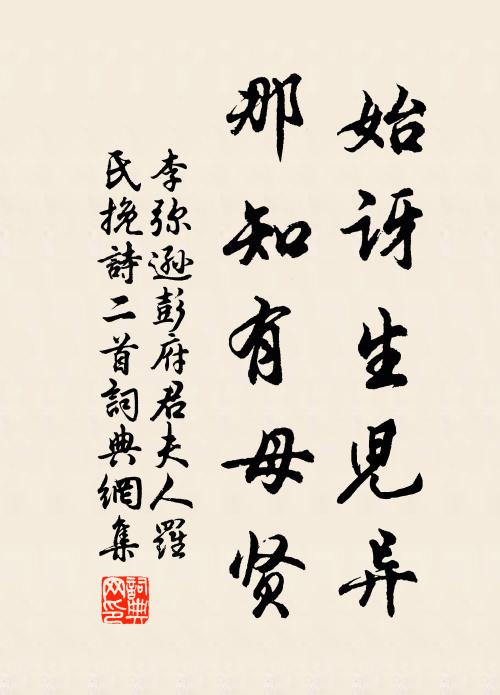 始讶生児异
那知有母贤
李弥遜彭府君夫人羅
氏挽詩二首詞典網集
詞典網印